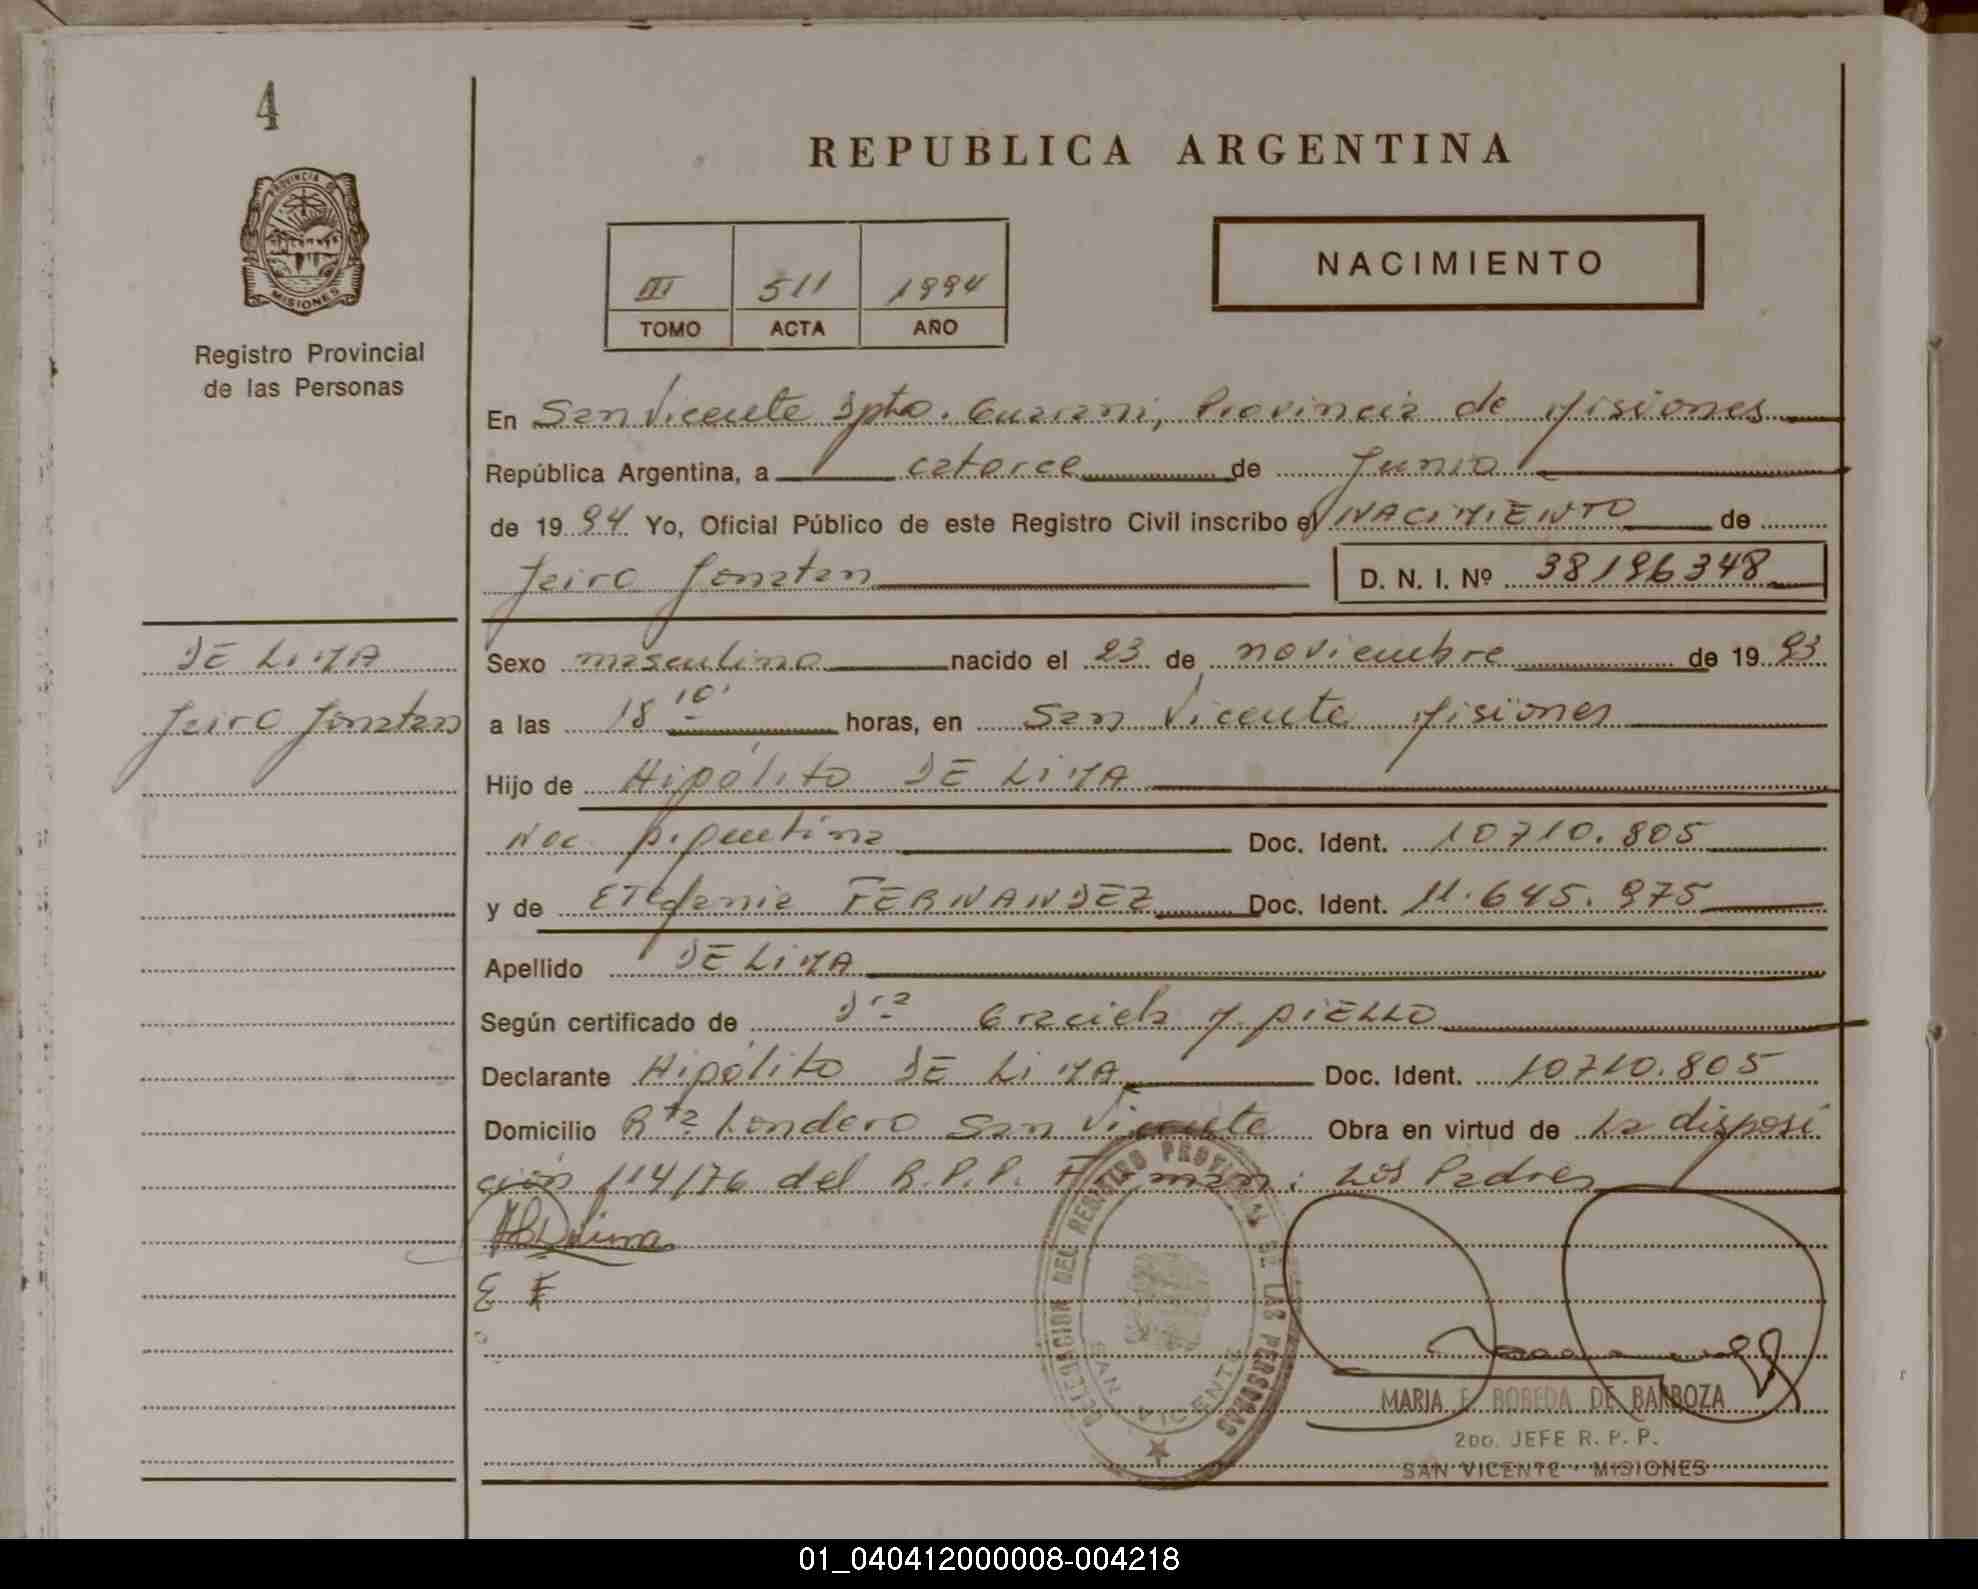 4
REPUBLICA ARGENTINA
PROVINCIA DE
MISIONES
Registro Provincial
de las Personas
III 511 1994
TOMO ACTA AÑO
NACIMIENTO
En San Vicente Dpto. Guarani, Provincia de Misiones
República Argentina, a catorce de Junio
de 19 94 Yo, Oficial Público de este Registro Civil inscribo el NACIMIENTO de
Jairo Jonatan D. N. I. Nº 38196348
DE LIMA
Jairo Jonatan
Sexo masculino nacido el 23 de noviembre de 19 93
a las 18 10' horas, en San Vicente Misiones
Hijo de Hipólito DE LIMA
Nac. Argentina Doc. Ident. 10710.805
y de FERNANDEZ Doc. Ident. 11.645.975
Apellido DE LIMA
Según certificado de Dra Graciela M.
Declarante Hipólito DE LIMA Doc. Ident. 10710.805
Domicilio Rta Londero San Vicente Obra en virtud de la disposi
ción 114/76 del R.P.P. Firman: Los Padres
E F
DELEGACION DEL REGISTRO PROVINCIAL DE LAS PERSONAS
SAN VICENTE
MARIA E. BOBEDA DE BARBOZA
2DO. JEFE R. P. P.
SAN VICENTE - MISIONES
01_040412000008-004218